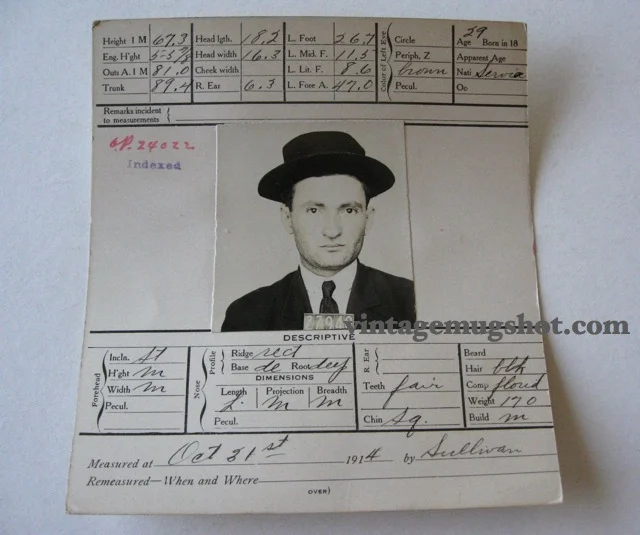 Height 1 M 67.3 Head lgth. 18.2 L. Foot 26.7 Circle Age 29 Born in 18
Eng. H'ght 5-5 7/8 Head width 16.3 L. Mid. F. 11.5 Periph, Z Apparent Age
Outs A. 1 M 81.0 Cheek width L. Lit. F. 8.6 brown Nati Servia
Trunk 89.4 R. Ear 6.3 L. Fore A. 47.0 Pecul. Oc
Color of Left Eye
Remarks incident
to measurements
24022
Indexed
vintagemugshot.com
DESCRIPTIVE
Forehead Incln. st Nose Profile Ridge rect R. Ear Beard
H'ght m Base de Root deep Hair blk
Width m DIMENSIONS Teeth fair Comp flored
Pecul. Length Projection Breadth Weight 170
L. m m Chin sq. Build m
Pecul.
Measured at Oct 21st 1914 by Sullivan
Remeasured—When and Where
OVER)